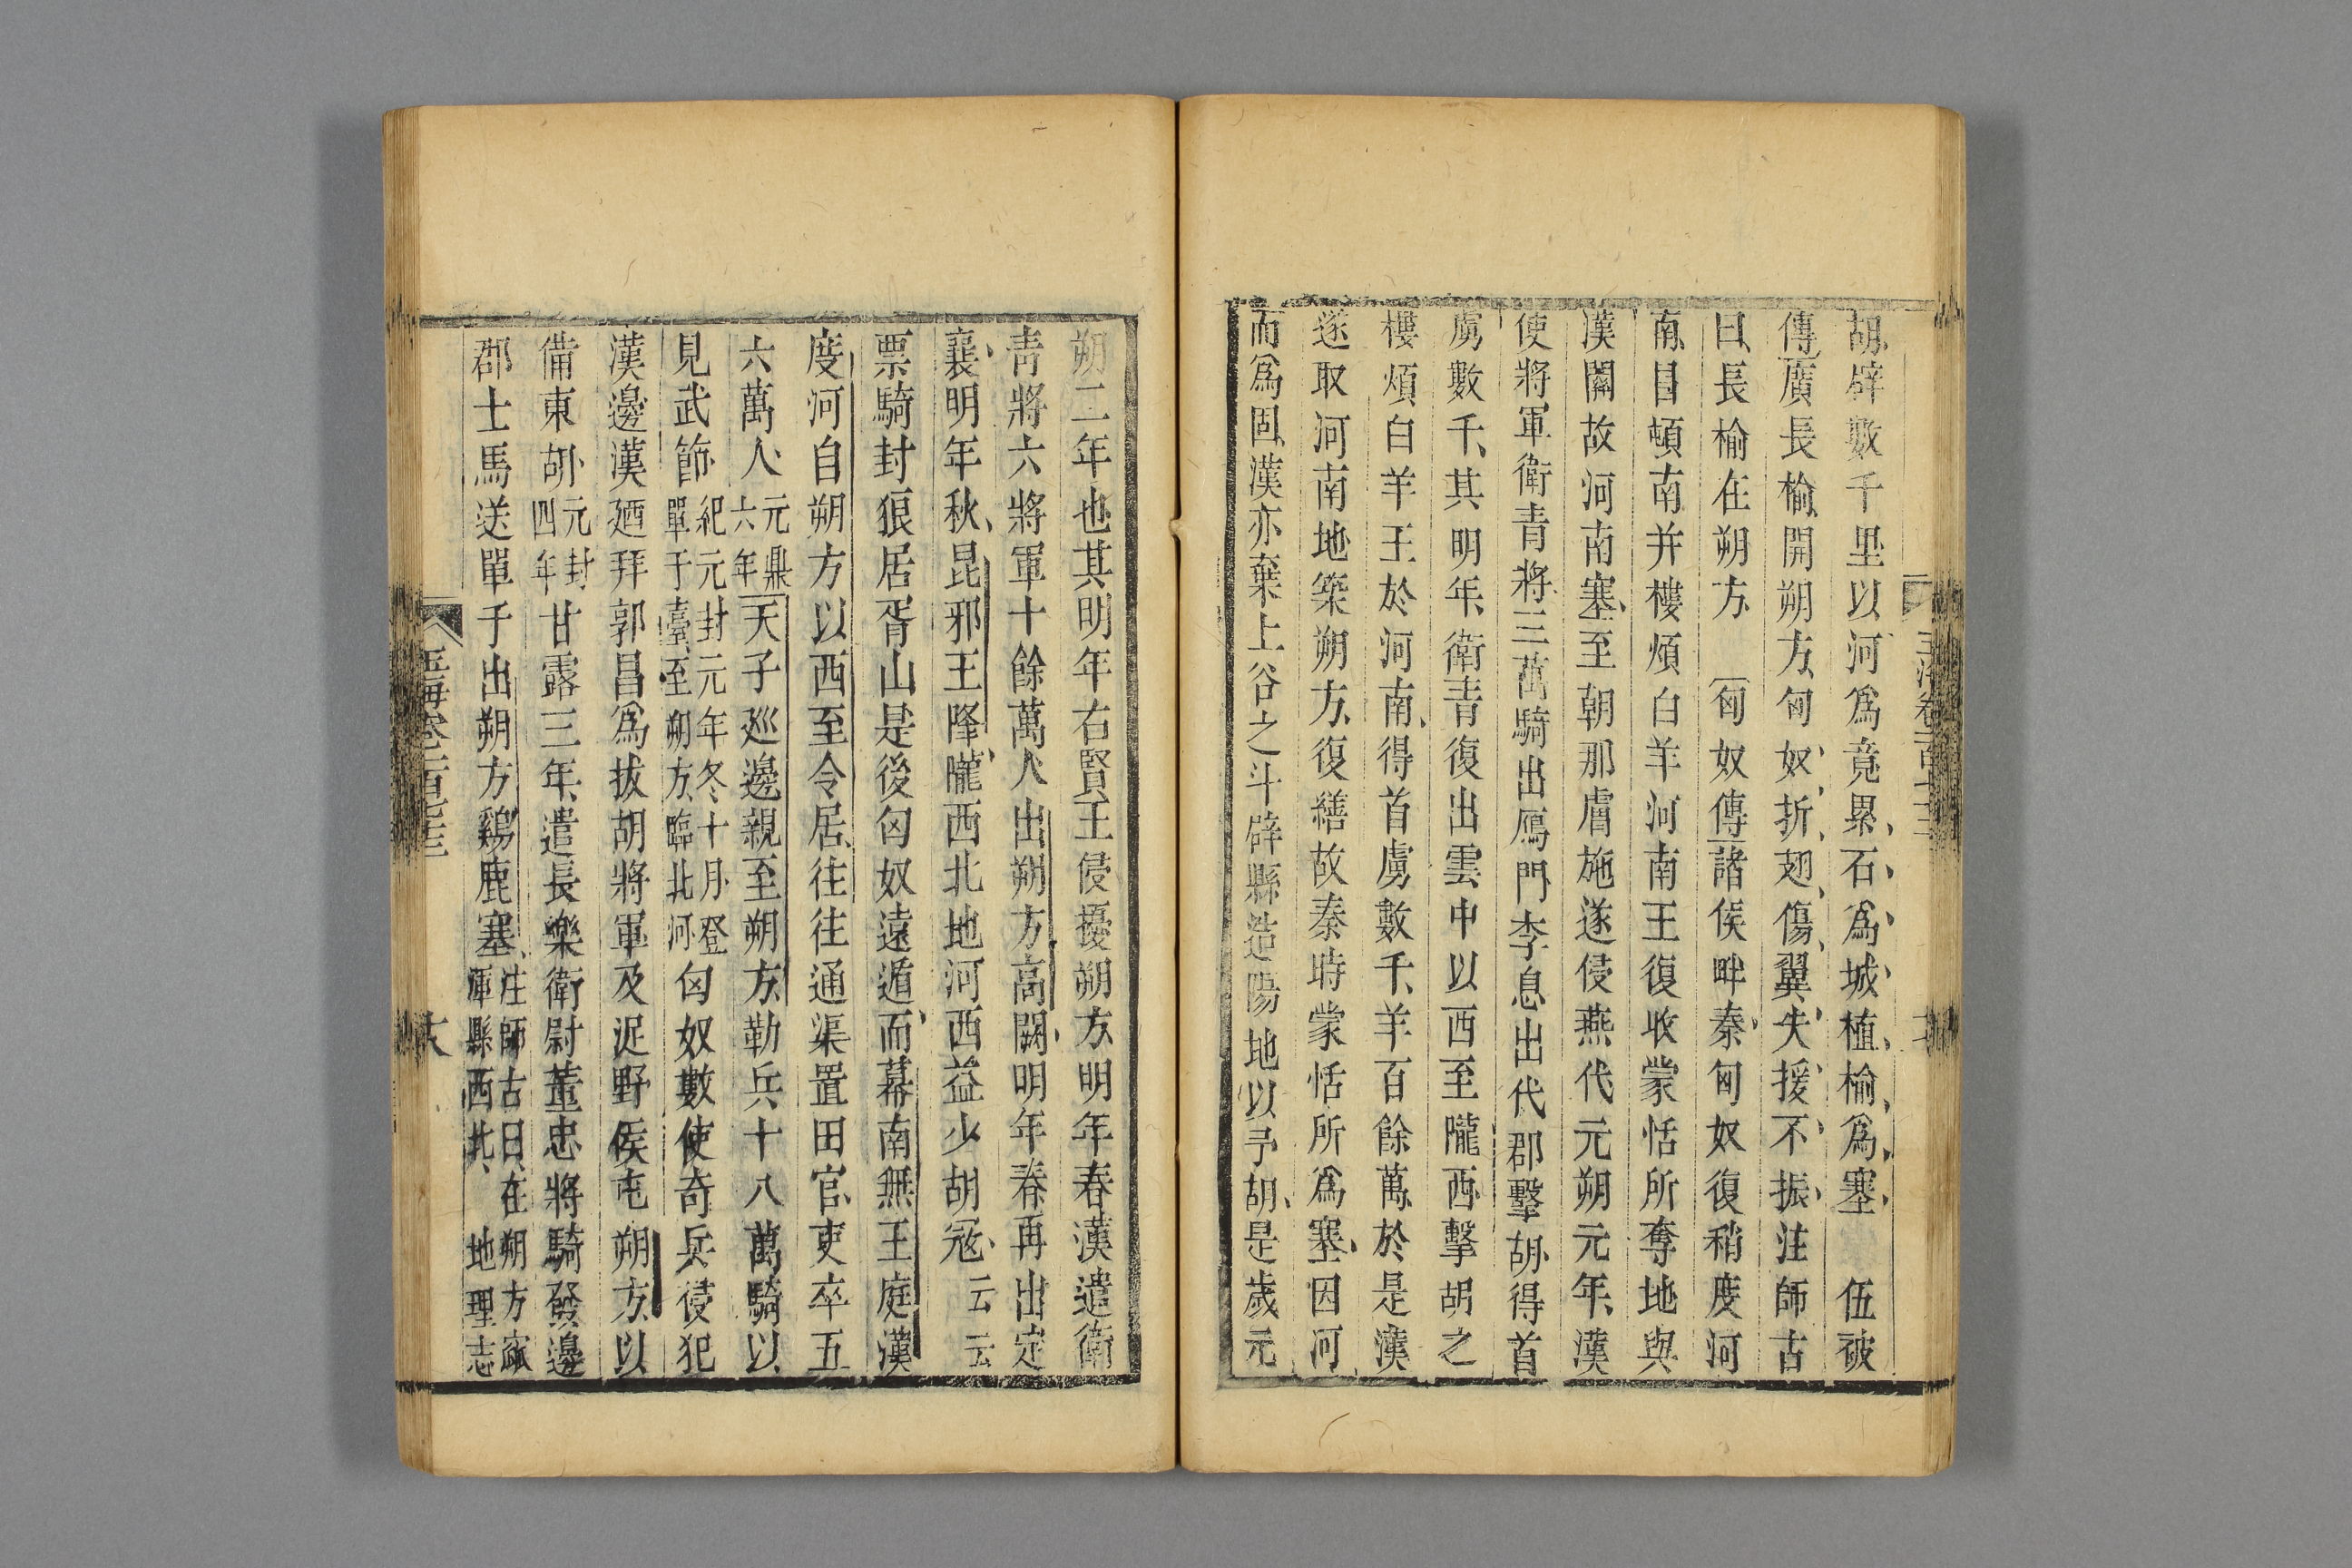 胡辟數千里以河爲竟累石爲城植榆爲塞　伍被
傳廣長榆開朔方匈奴折翅傷翼失援不振注師古
曰長榆在朔方　匈奴傳諸侯畔秦匈奴復稍度河
南冒頓南并樓煩白羊河南王復收蒙恬所奪地與
漢關故河南塞至朝那膚施遂侵燕代元朔元年漢
使將軍衛青將三萬騎出鴈門李息出代郡擊胡得首
虜數千其明年衛青復出雲中以西至隴西擊胡之
樓煩白羊王於河南得首虜數千羊百餘萬於是漢
遂取河南地築朔方復繕故秦時蒙恬所爲塞因河
而爲固漢亦棄上谷之斗辟縣造陽地以予胡是歲元
朔二年也其明年右賢王侵擾朔方明年春漢遣衛
青將六將軍十餘萬人出朔方高闕明年春再出定
襄明年秋昆邪王降隴西北地河西益少胡寇云云
票騎封狼居胥山是後匈奴遠遁而幕南無王庭漢
度河自朔方以西至令居往往通渠置田官吏卒五
六萬人元鼎六年天子巡邊親至朔方勒兵十八萬騎以
見武節紀元封元年冬十月登單于臺至朔方臨北河匈奴數使奇兵侵犯
漢邊漢廼拜郭昌爲拔胡將軍及浞野侯屯朔方以
備東胡元封四年甘露三年遣長樂衛尉董忠將騎發邊
郡士馬送單于出朔方雞鹿塞注師古曰在朔方窳渾縣西北　地理志
玉海卷一百七十三
六